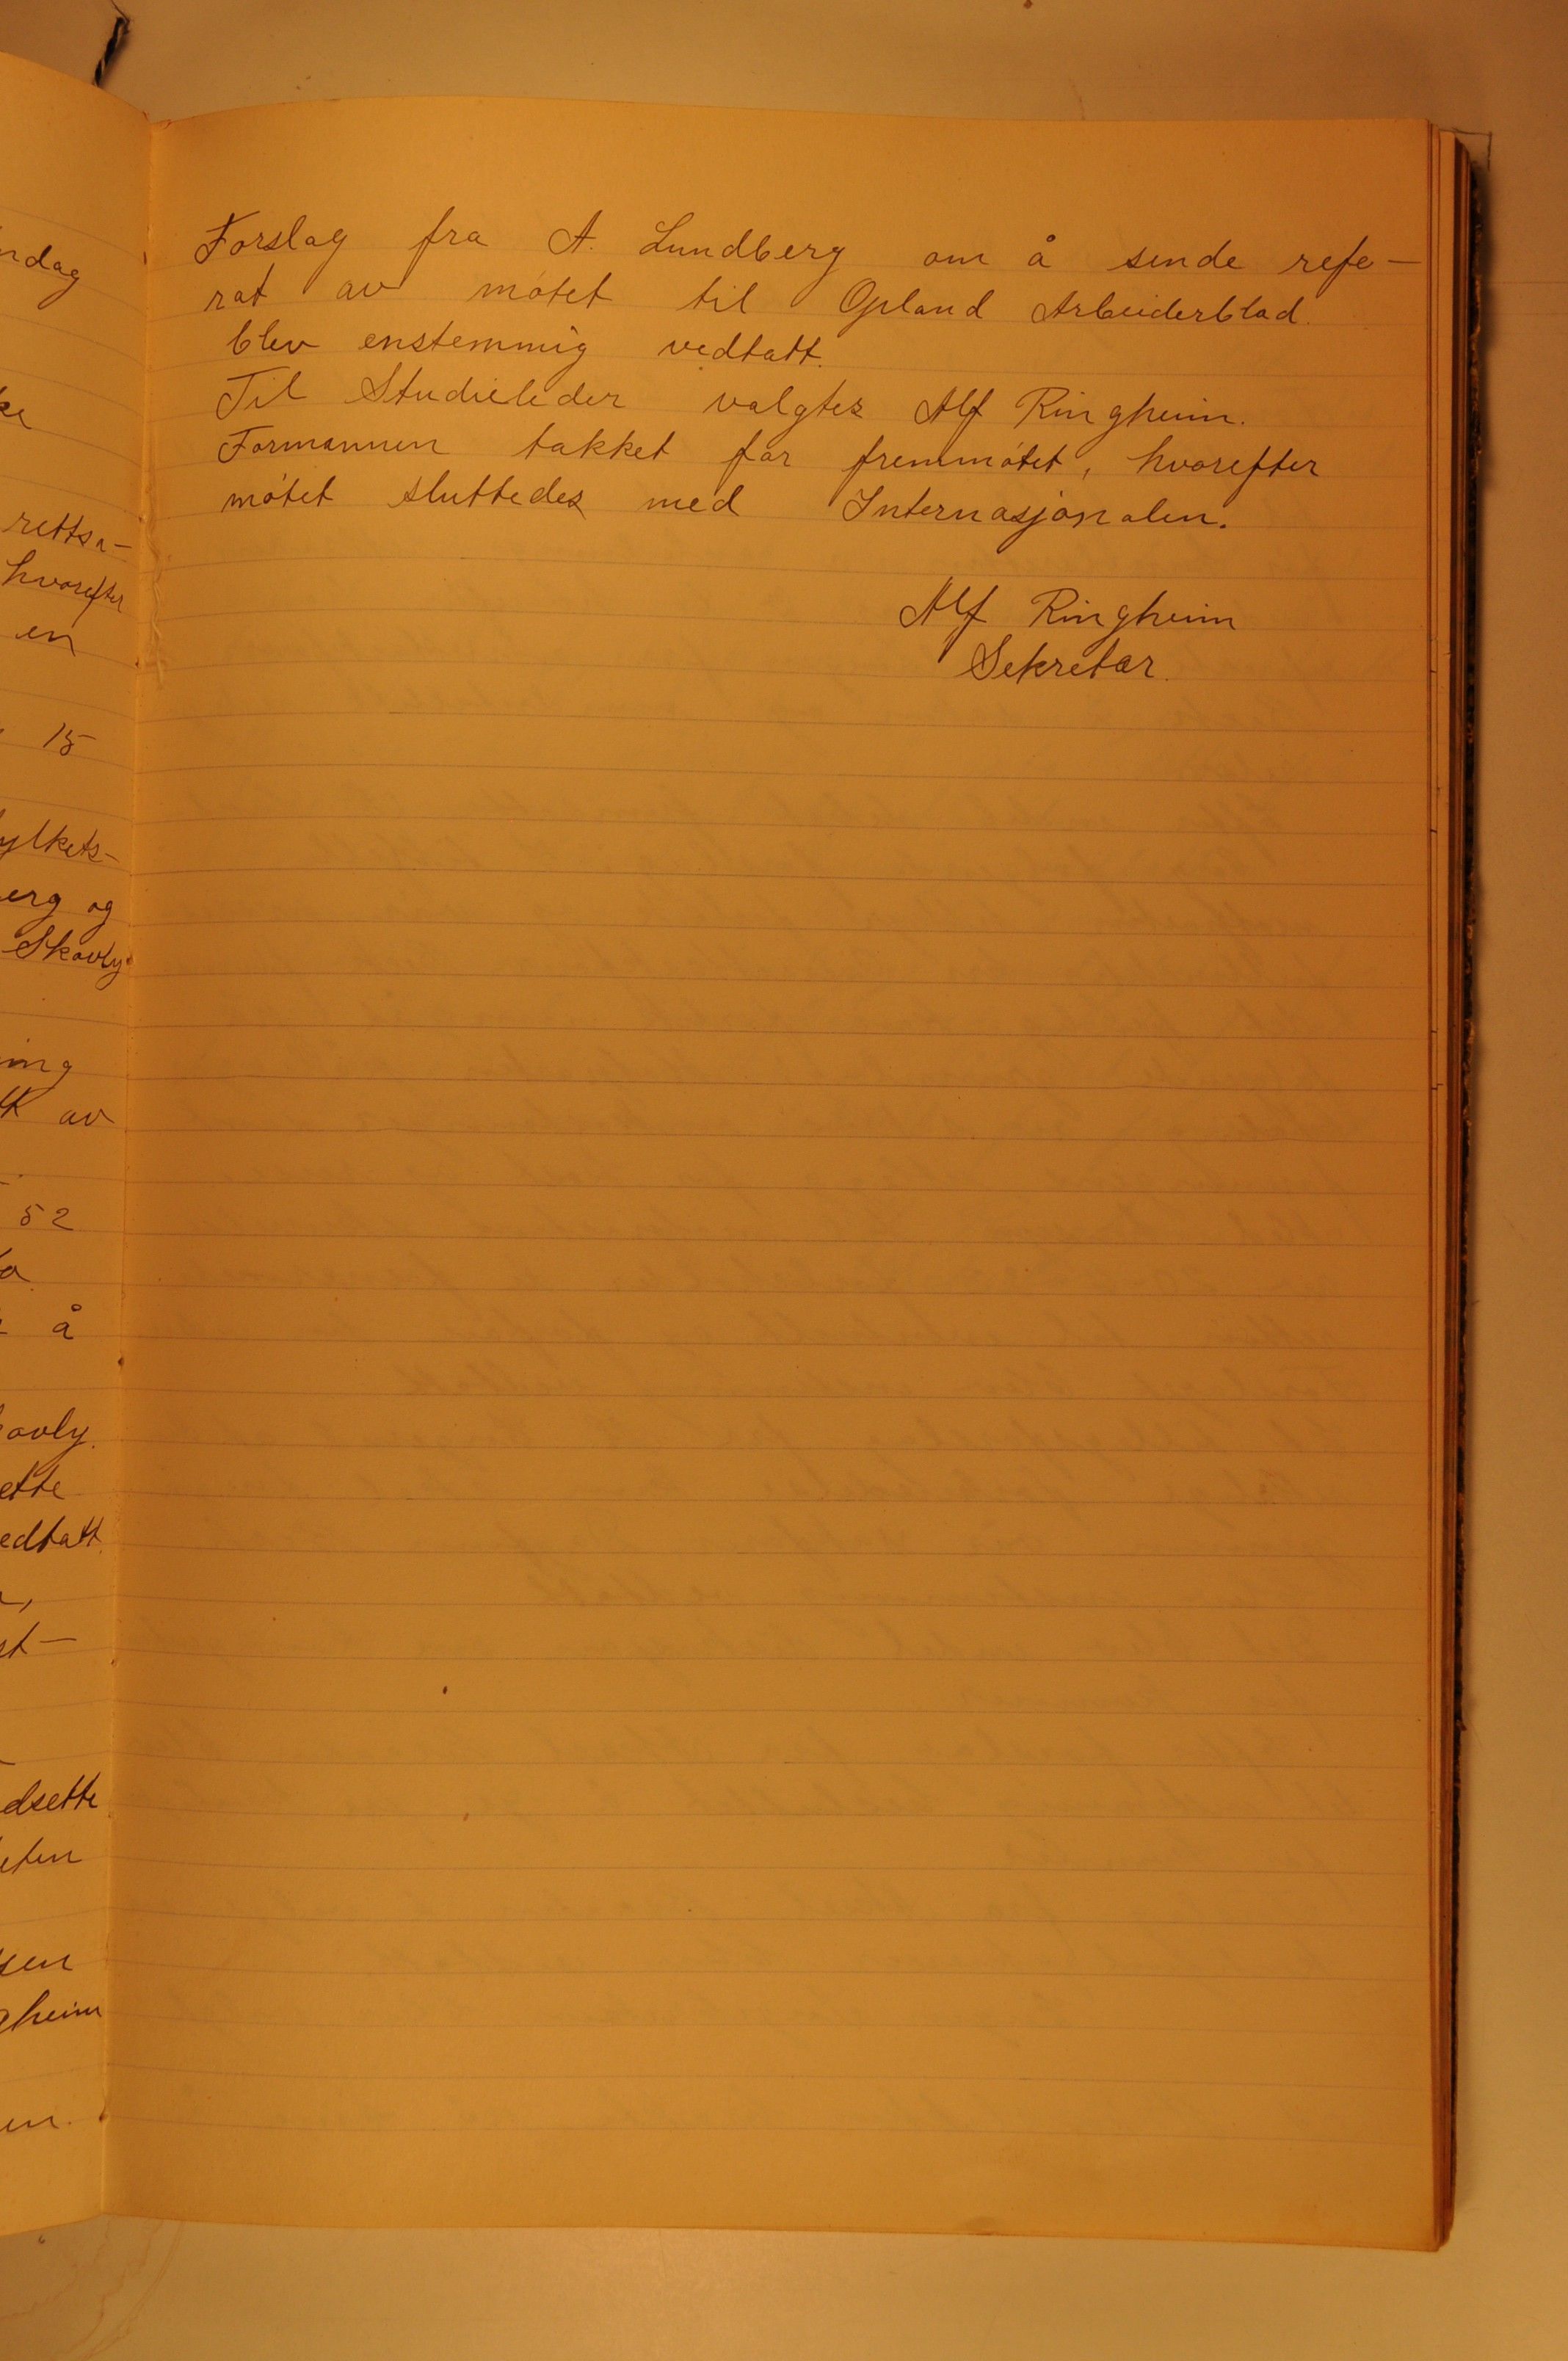 ndag
rettsa-
hvorefter
en
15
ylkets-
erg og
Skovly
ing
av
52
å
ovly.
ette
edtatt.
st-
dsette
eten
sen
gheim
en.
Forslag fra A. Lundberg om å sende refe-
rat av møtet til Opland Arbeiderblad.
blev enstemmig vedtatt.
Til Studieleder valgtes Alf Ringheim.
Formannen takket for fremmøtet, hvorefter
møtet sluttedes med Internasjonalen.
Alf Ringheim
Sekretær.